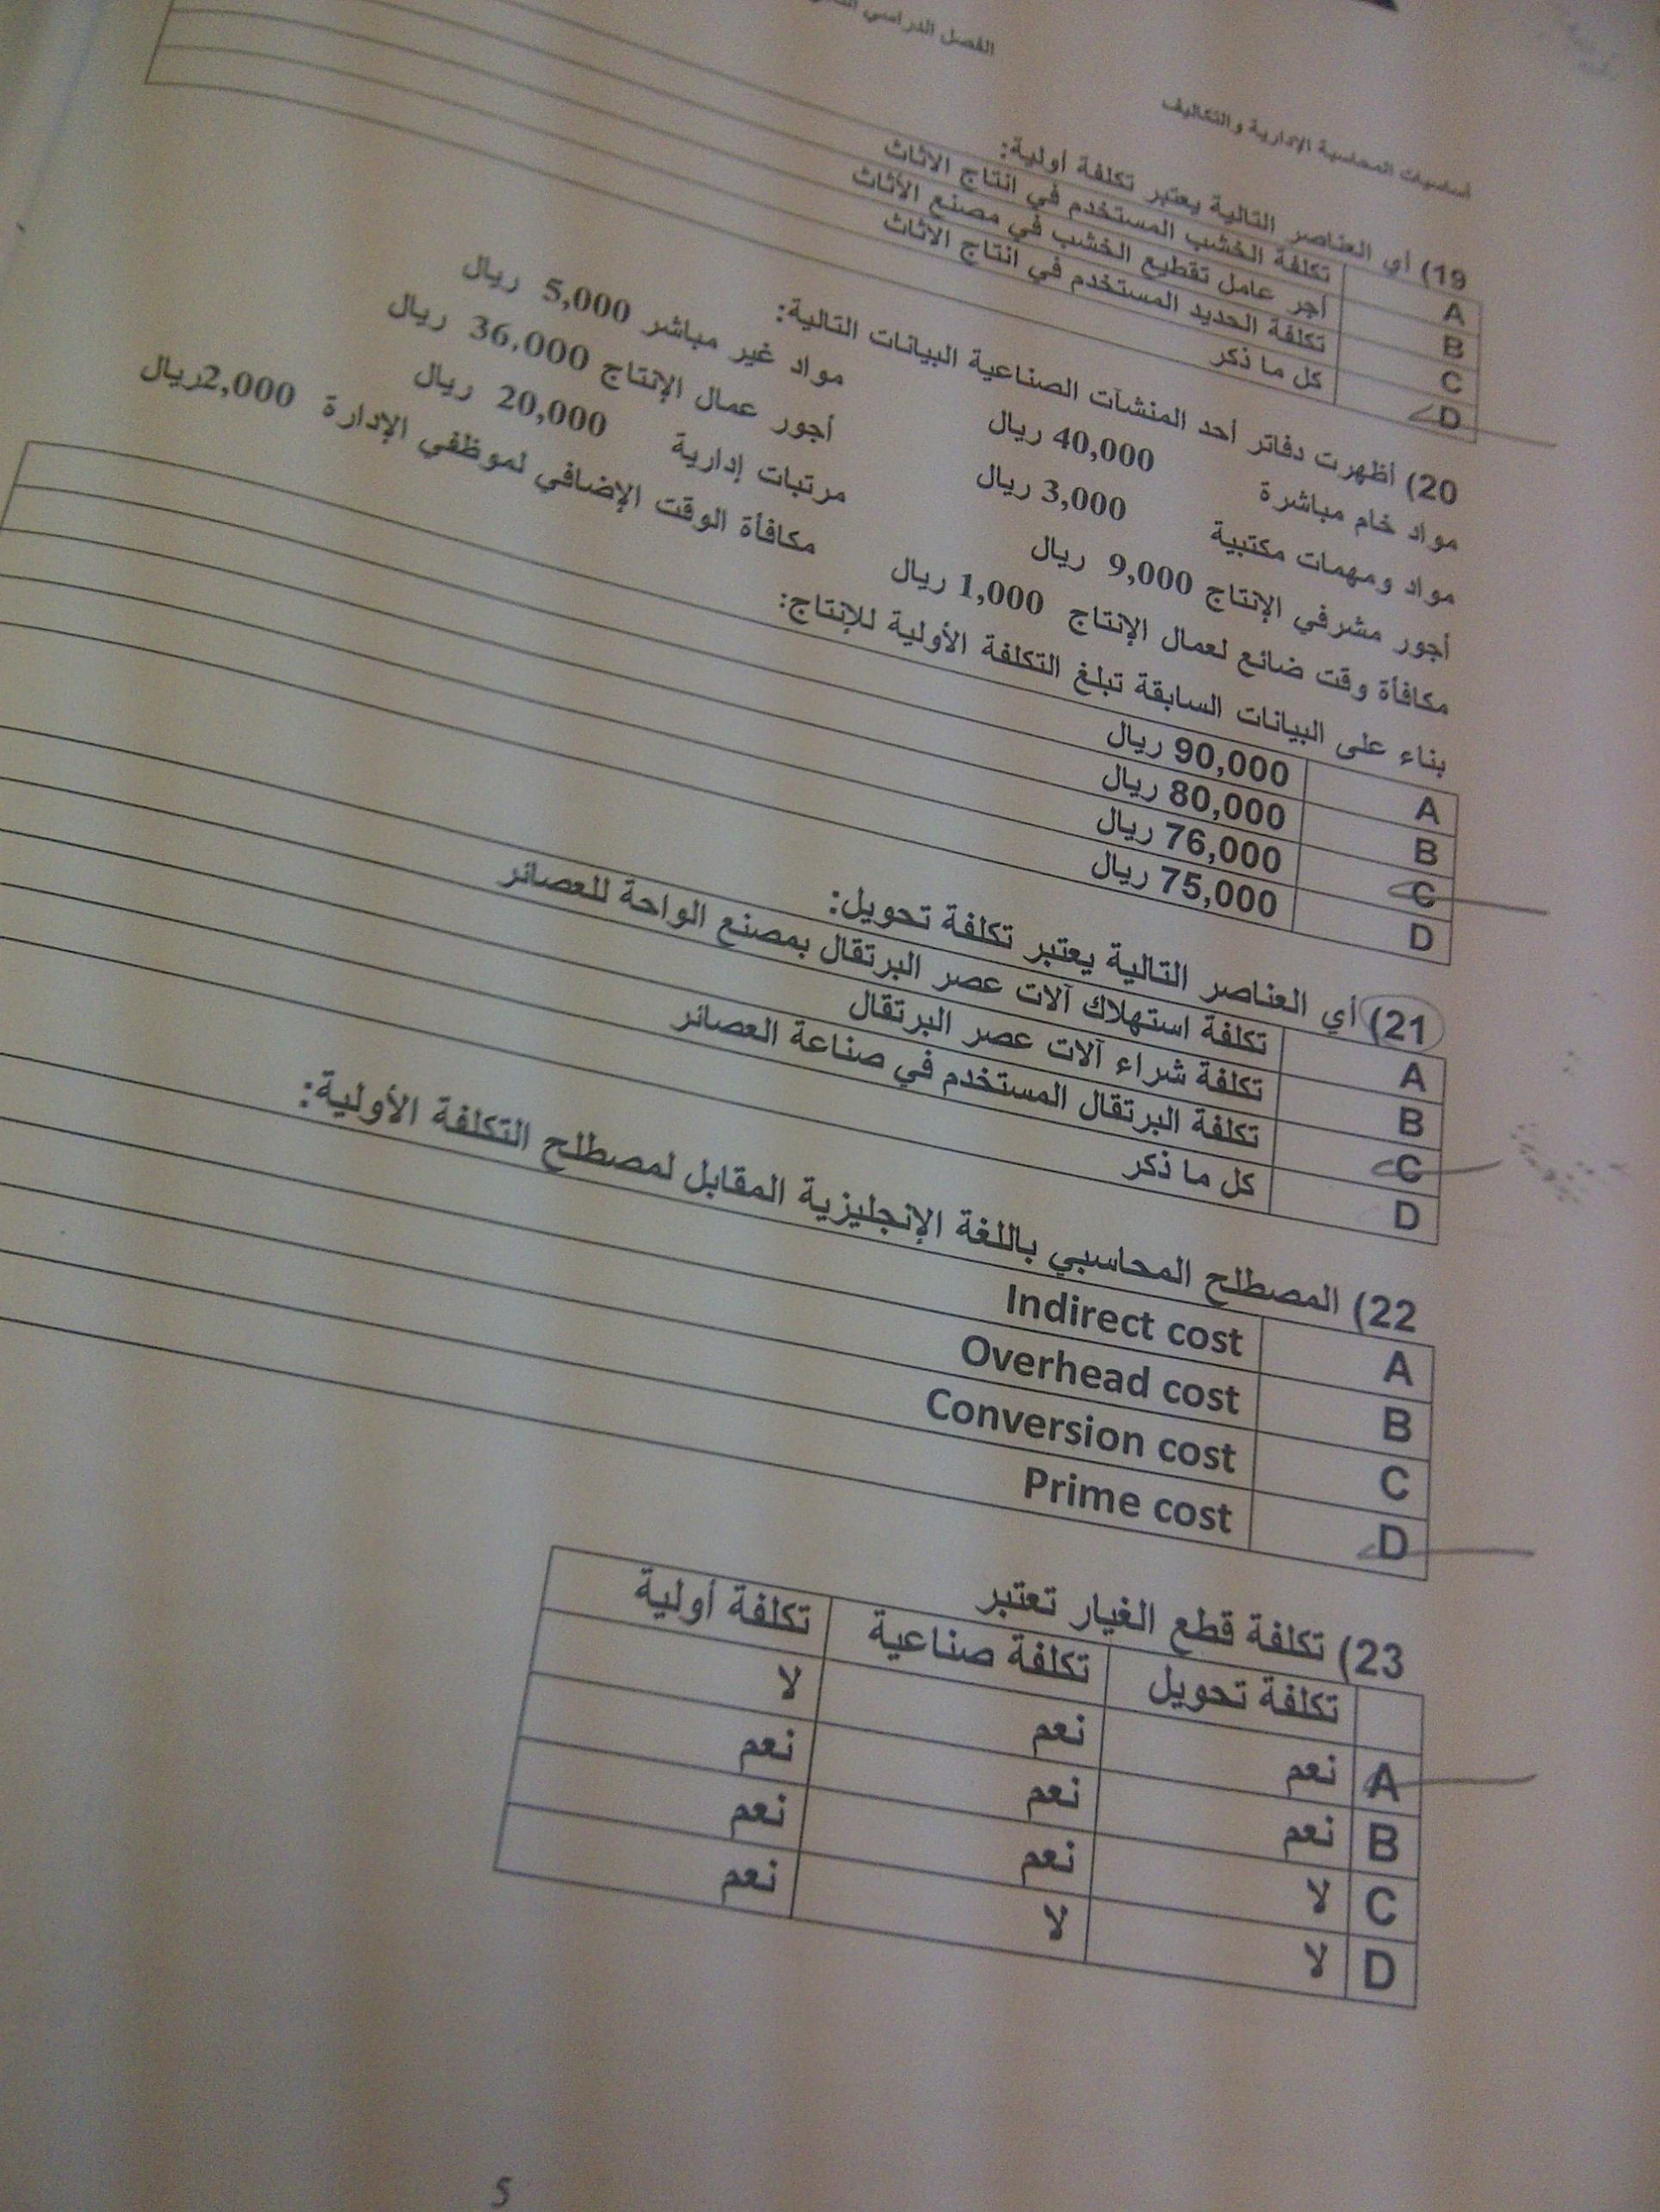 الفصل الدراسي
أساسيات المحاسبة الإدارية والتكاليف
19) أي العناصر التالية يعتبر تكلفة أولية:
A تكلفة الخشب المستخدم في انتاج الاثاث
B أجر عامل تقطيع الخشب في مصنع الأثاث
C تكلفة الحديد المستخدم في انتاج الاثاث
D كل ما ذكر
20) أظهرت دفاتر أحد المنشآت الصناعية البيانات التالية:
مواد خام مباشرة 40,000 ريال مواد غير مباشر 5,000 ريال
مواد ومهمات مكتبية 3,000 ريال أجور عمال الإنتاج 36,000 ريال
أجور مشرفي الإنتاج 9,000 ريال مرتبات إدارية 20,000 ريال
مكافأة وقت ضائع لعمال الإنتاج 1,000 ريال مكافأة الوقت الإضافي لموظفي الإدارة 2,000ريال
بناء على البيانات السابقة تبلغ التكلفة الأولية للإنتاج:
A 90,000 ريال
B 80,000 ريال
C 76,000 ريال
D 75,000 ريال
21) أي العناصر التالية يعتبر تكلفة تحويل:
A تكلفة استهلاك آلات عصر البرتقال بمصنع الواحة للعصائر
B تكلفة شراء آلات عصر البرتقال
C تكلفة البرتقال المستخدم في صناعة العصائر
D كل ما ذكر
22) المصطلح المحاسبي باللغة الإنجليزية المقابل لمصطلح التكلفة الأولية:
A Indirect cost
B Overhead cost
C Conversion cost
D Prime cost
23) تكلفة قطع الغيار تعتبر
تكلفة تحويل تكلفة صناعية تكلفة أولية
A نعم نعم لا
B نعم نعم نعم
C لا نعم نعم
D لا لا نعم
5